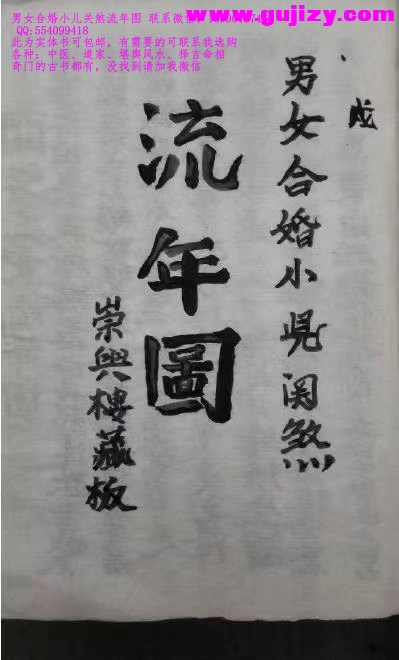 www.gujizy.com
男女合婚小儿关煞流年图 联系微信
QQ:554099418
此为实体书可包邮，有需要的可联系我选购
各种：中医、道家、堪舆风水、择吉命相
奇门的古书都有，没找到请加我微信
男女合婚小児関煞
流年圖
崇興樓藏板